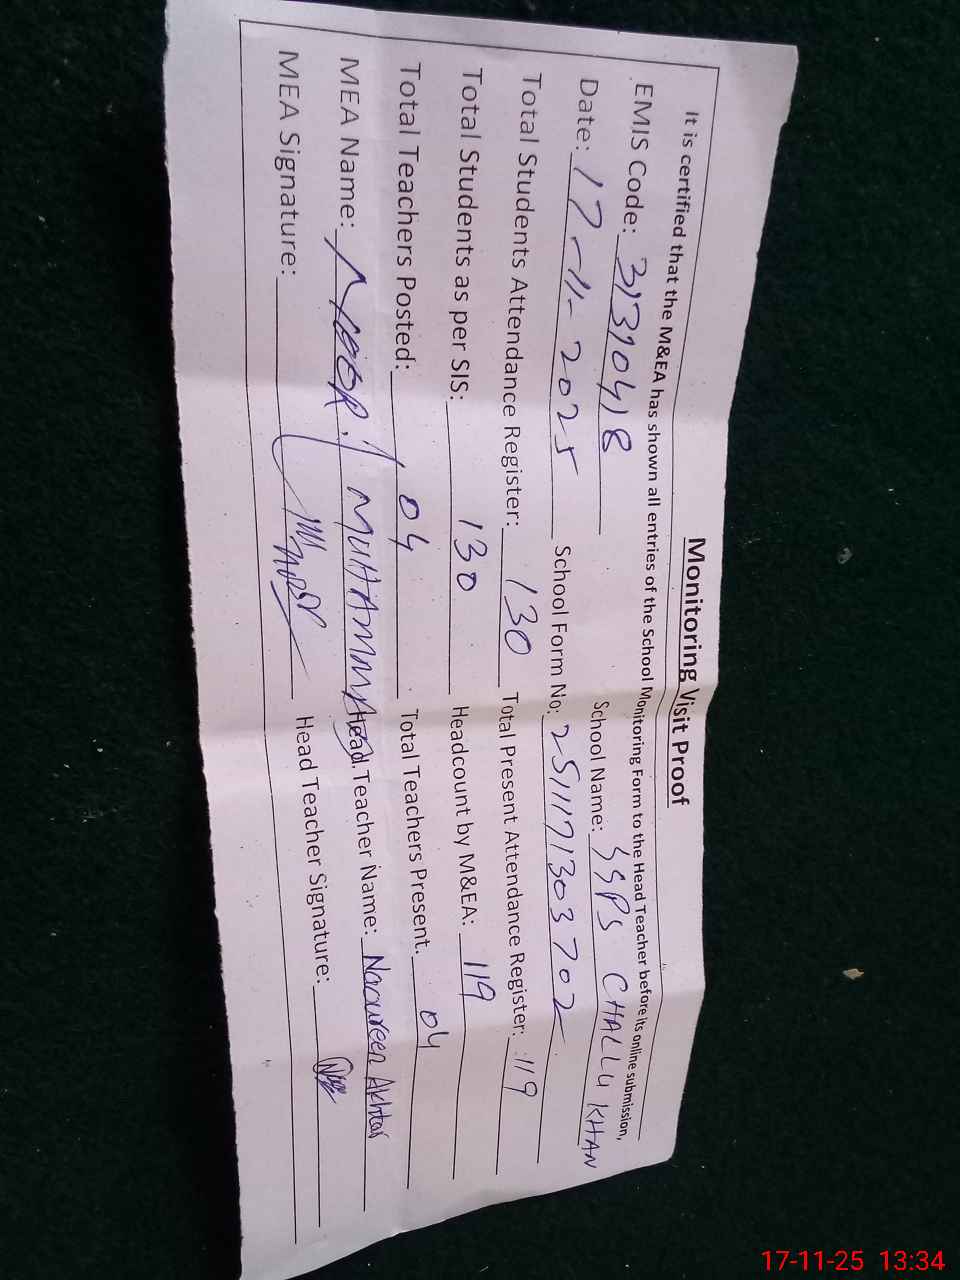 Monitoring Visit Proof
It is certified that the M&EA has shown all entries of the School Monitoring Form to the Head Teacher before its online submission,
EMIS Code: 31310418 School Name: GGPS CHALLU KHAN
Date: 17-11-2025 School Form No: 2511171303702
Total Students Attendance Register: 130 Total Present Attendance Register: 119
Total Students as per SIS: 130 Headcount by M&EA: 119
Total Teachers Posted: 04 Total Teachers Present. 04
MEA Name: NOOR MUHAMMAD Head Teacher Name: Noureen Akhtar
MEA Signature: Head Teacher Signature:
17-11-25 13:34